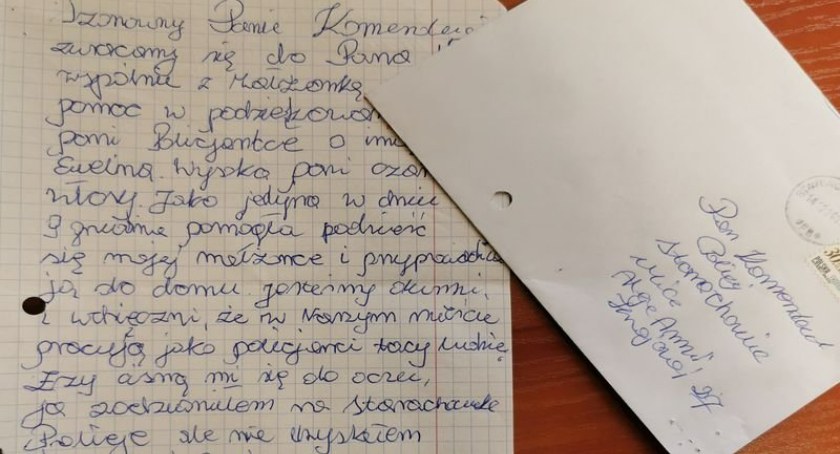 Szanowny Panie Komendan
zwracamy się do Pana
wspólnie z Małżonką
pomoc w podziękowan
pani Policjantce o im
Ewelina. Wysoka pani czar
włosy. Jako jedyna w dniu
9 grudnia pomogła podnieść
się mojej małżonce i przyprowadziła
ją do domu. Jesteśmy dumni,
i wdzięczni, że w Naszym mieście
pracują jako policjanci tacy ludzie
Łzy cisną mi się do oczu,
ja zadzwoniłem na Starachowicką
Policję ale nie uzyskałem
Pan Komendant
Policji
Starachowice
ulica
Armii
27